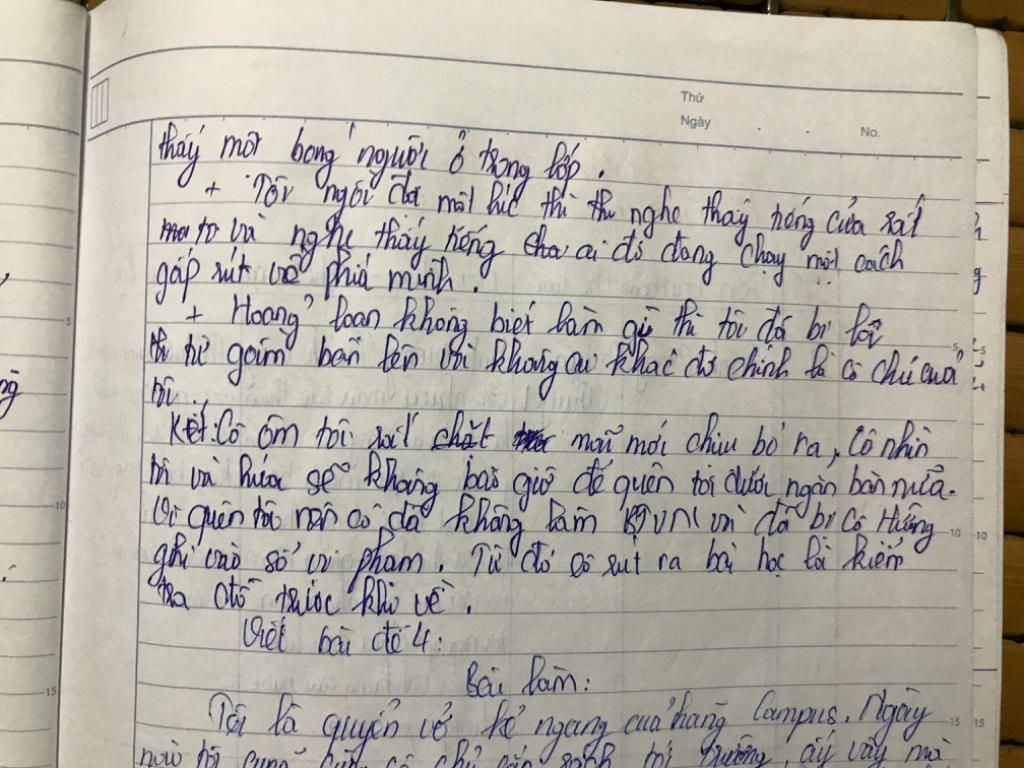 Thứ
Ngày
No.
thấy một bóng người ở trong lớp.
+ Tôi ngồi đợi một lúc thì thì nghe thấy tiếng cửa rất
to và nghe thấy tiếng ai đó đang chạy một cách
gấp rút về phía mình.
+ Hoảng loạn không biết làm gì thì tôi đã bị lôi
từ gầm bàn lên và không ai khác đó chính là cô chủ của
tôi...
Kết: Cô ôm tôi rất chặt mãi mới chịu bỏ ra, Cô nhìn
tôi và hứa sẽ không bao giờ để quên tôi dưới ngăn bàn nữa.
Vì quên tôi nên cô đã không làm BTVN và đã bị Cô Hường
ghi vào sổ vi phạm. Từ đó cô rút ra bài học là kiểm
tra trước khi về.
Viết bài đề 4:
Bài làm:
Tôi là quyển vở kẻ ngang của hãng Campus. Ngày
nào tôi cũng cùng cô chủ sách tới trường, ấy vậy mà
5
10
15
5
10
15
5
10
15